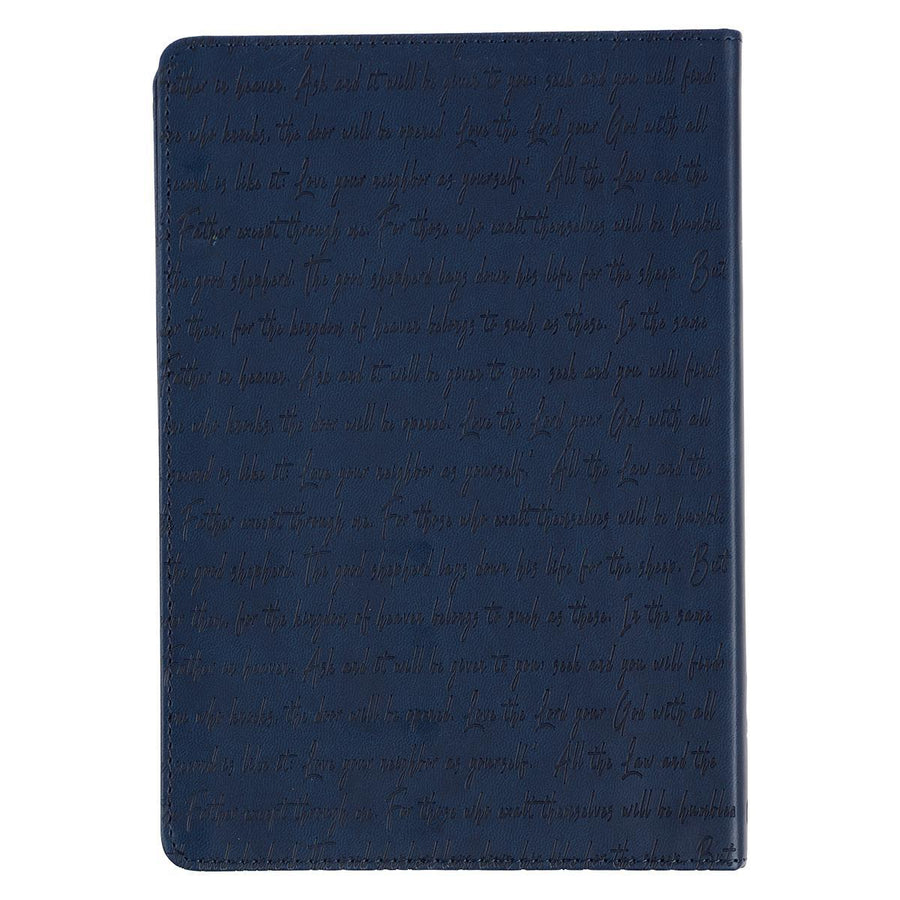 Father in heaven. Ask and it will be given to you; seek and you will find;
one who knocks, the door will be opened. Love the Lord your God with all
second is like it: Love your neighbor as yourself.' All the Law and the
Father except through me. For those who exalt themselves will be humble
the good shepherd. The good shepherd lays down his life for the sheep. But
or them, for the kingdom of heaven belongs to such as these. In the same
Father in heaven. Ask and it will be given to you; seek and you will find;
one who knocks, the door will be opened. Love the Lord your God with all
second is like it: Love your neighbor as yourself.' All the Law and the
Father except through me. For those who exalt themselves will be humble
the good shepherd. The good shepherd lays down his life for the sheep. But
or them, for the kingdom of heaven belongs to such as these. In the same
Father in heaven. Ask and it will be given to you; seek and you will find;
one who knocks, the door will be opened. Love the Lord your God with all
second is like it: Love your neighbor as yourself.' All the Law and the
Father except through me. For those who exalt themselves will be humbled
the good shepherd. The good shepherd lays down his life for the sheep. But